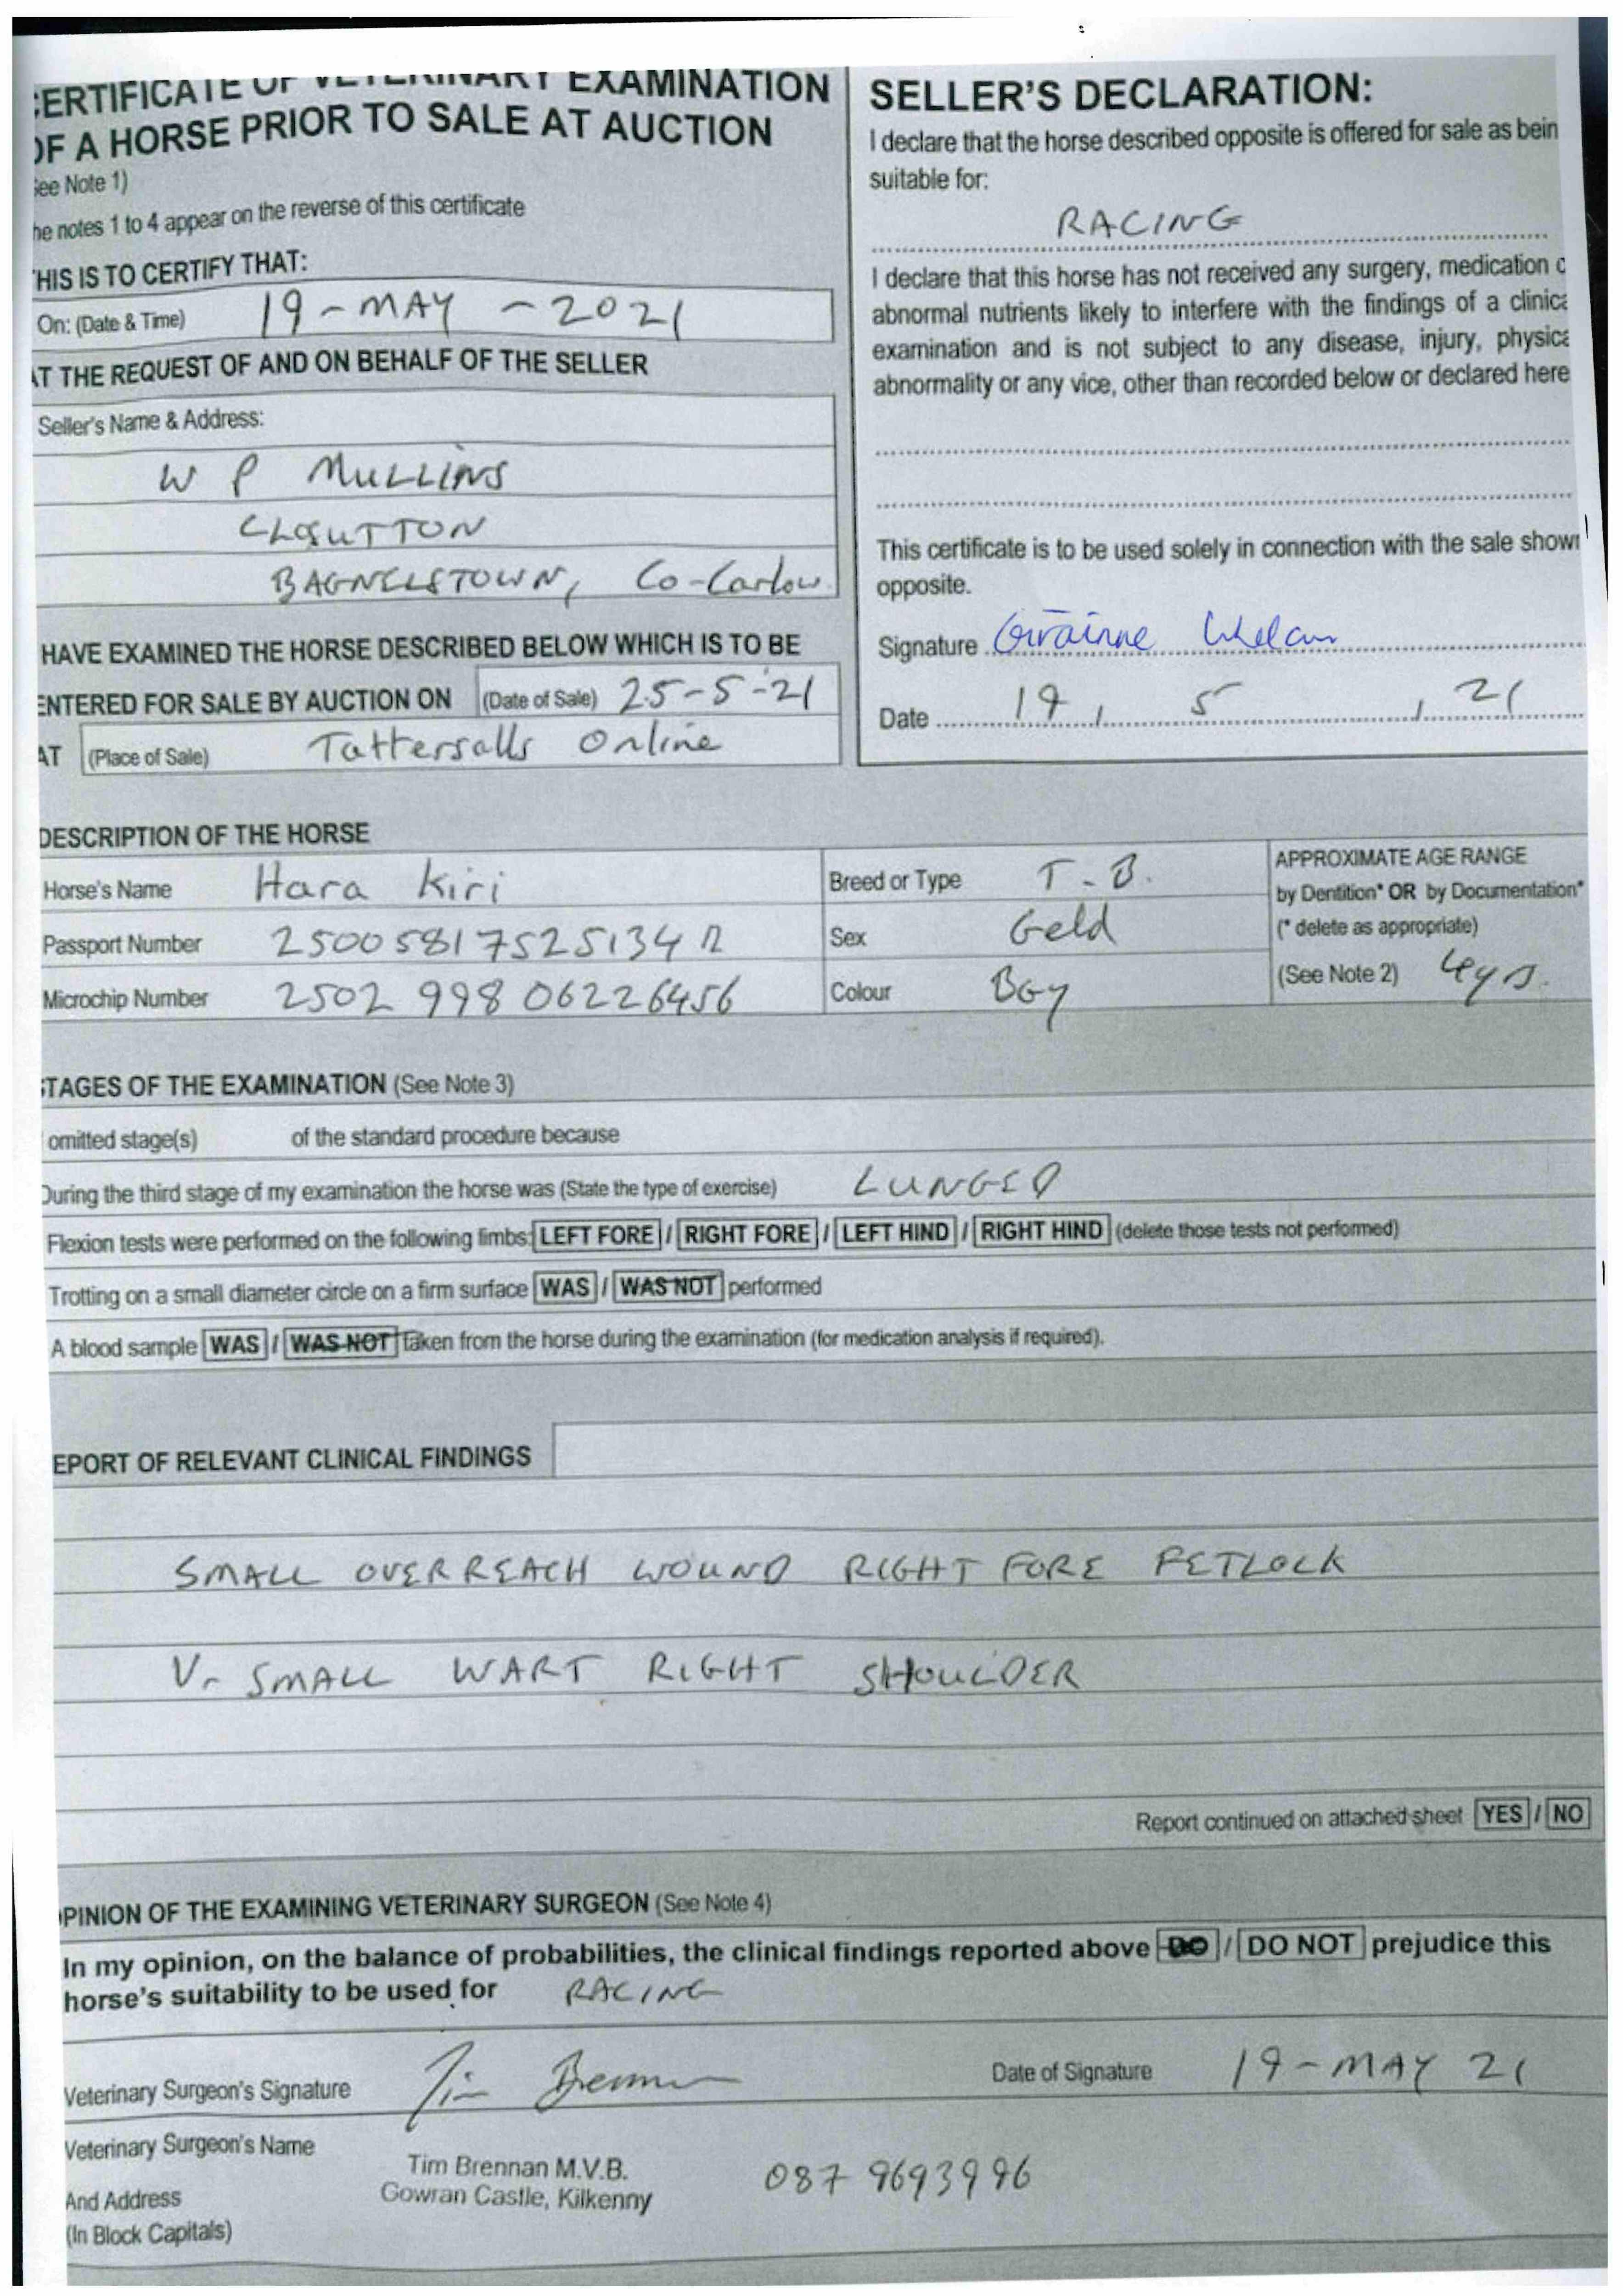 ERTIFICATE OF VETERINARY EXAMINATION
OF A HORSE PRIOR TO SALE AT AUCTION
See Note 1)
he notes 1 to 4 appear on the reverse of this certificate
THIS IS TO CERTIFY THAT:
On: (Date & Time) 19-MAY-2021
AT THE REQUEST OF AND ON BEHALF OF THE SELLER
Seller's Name & Address:
W P MULLINS
CLOSUTTON
BAGNELSTOWN, Co-Carlow
HAVE EXAMINED THE HORSE DESCRIBED BELOW WHICH IS TO BE
ENTERED FOR SALE BY AUCTION ON (Date of Sale) 25-5-21
AT (Place of Sale) Tattersalls Online
SELLER'S DECLARATION:
I declare that the horse described opposite is offered for sale as bein
suitable for:
RACING
I declare that this horse has not received any surgery, medication o
abnormal nutrients likely to interfere with the findings of a clinica
examination and is not subject to any disease, injury, physica
abnormality or any vice, other than recorded below or declared here
This certificate is to be used solely in connection with the sale shown
opposite.
Signature Gráinne Whelan
Date 19, 5, 21
DESCRIPTION OF THE HORSE
Horse's Name Hara Kiri
Passport Number 25005817525134
Microchip Number 2502 998 06226456
Breed or Type T.B.
Sex Geld
Colour Bay
APPROXIMATE AGE RANGE
by Dentition* OR by Documentation*
(* delete as appropriate)
(See Note 2) 4yrs.
STAGES OF THE EXAMINATION (See Note 3)
I omitted stage(s) of the standard procedure because
During the third stage of my examination the horse was (State the type of exercise) LUNGED
Flexion tests were performed on the following limbs: LEFT FORE / RIGHT FORE / LEFT HIND / RIGHT HIND (delete those tests not performed)
Trotting on a small diameter circle on a firm surface WAS / WAS NOT performed
A blood sample WAS / WAS NOT taken from the horse during the examination (for medication analysis if required).
EPORT OF RELEVANT CLINICAL FINDINGS
SMALL OVERREACH WOUND RIGHT FORE FETLOCK
V. SMALL WART RIGHT SHOULDER
Report continued on attached sheet YES / NO
OPINION OF THE EXAMINING VETERINARY SURGEON (See Note 4)
In my opinion, on the balance of probabilities, the clinical findings reported above DO / DO NOT prejudice this
horse's suitability to be used for RACING
Veterinary Surgeon's Signature Tim Brennan
Date of Signature 19-MAY 21
Veterinary Surgeon's Name
And Address
(In Block Capitals)
Tim Brennan M.V.B.
Gowran Castle, Kilkenny
087 9693996